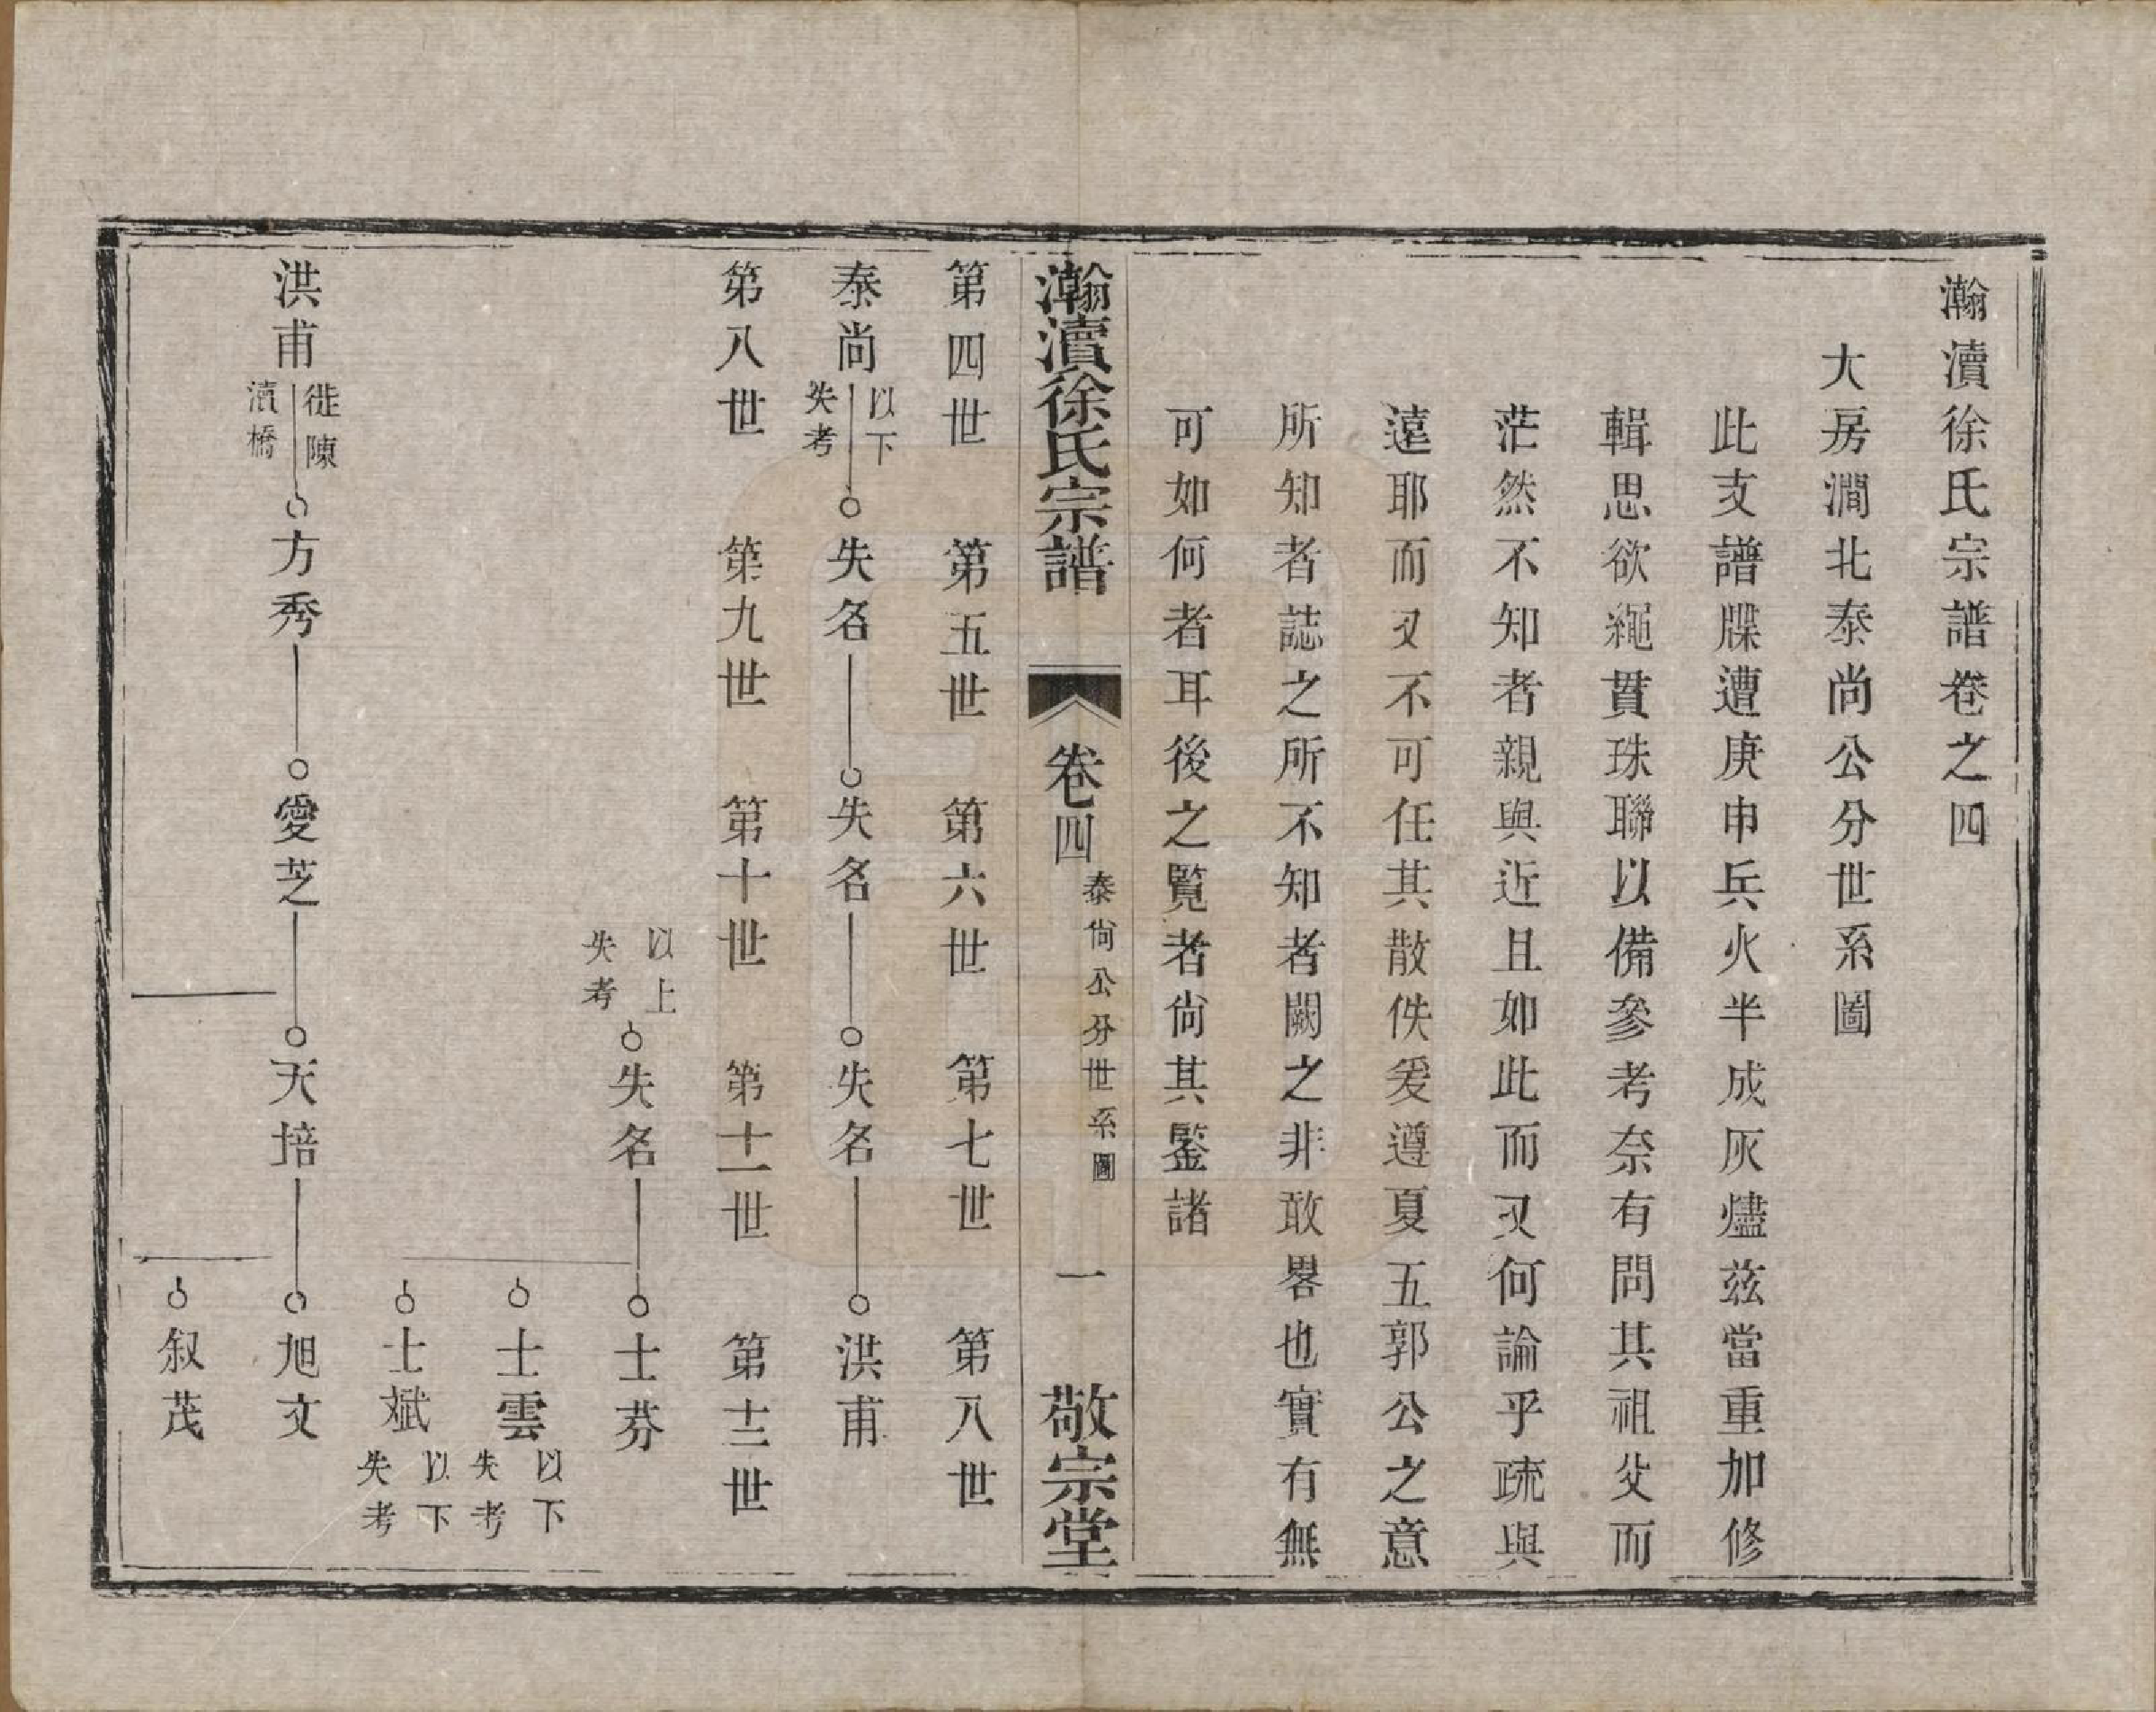 瀚瀆徐氏宗譜卷之四
大房澗北泰尚公分世系圖
此支譜牒遭庚申兵火半成灰燼茲當重加修
輯思欲繩貫珠聯以備參考奈有問其祖父而
茫然不知者親與近且如此而又何論乎疏與
遠耶而又不可任其散佚爰遵夏五郭公之意
所知者誌之所不知者闕之非敢畧也實有無
可如何者耳後之覧者尙其鍳諸
瀚瀆徐氏宗譜 卷四 泰尙公分世系圖 一 敬宗堂
第四世 第五世 第六世 第七世 第八世
泰尚 以下失考 失名 失名 失名 洪甫
第八世 第九世 第十世 第十一世 第十二世
以上失考 失名 士芬
士雲 以下失考
士斌 以下失考
洪甫 徙陳瀆橋 方秀 愛芝 天培 旭文
叙茂